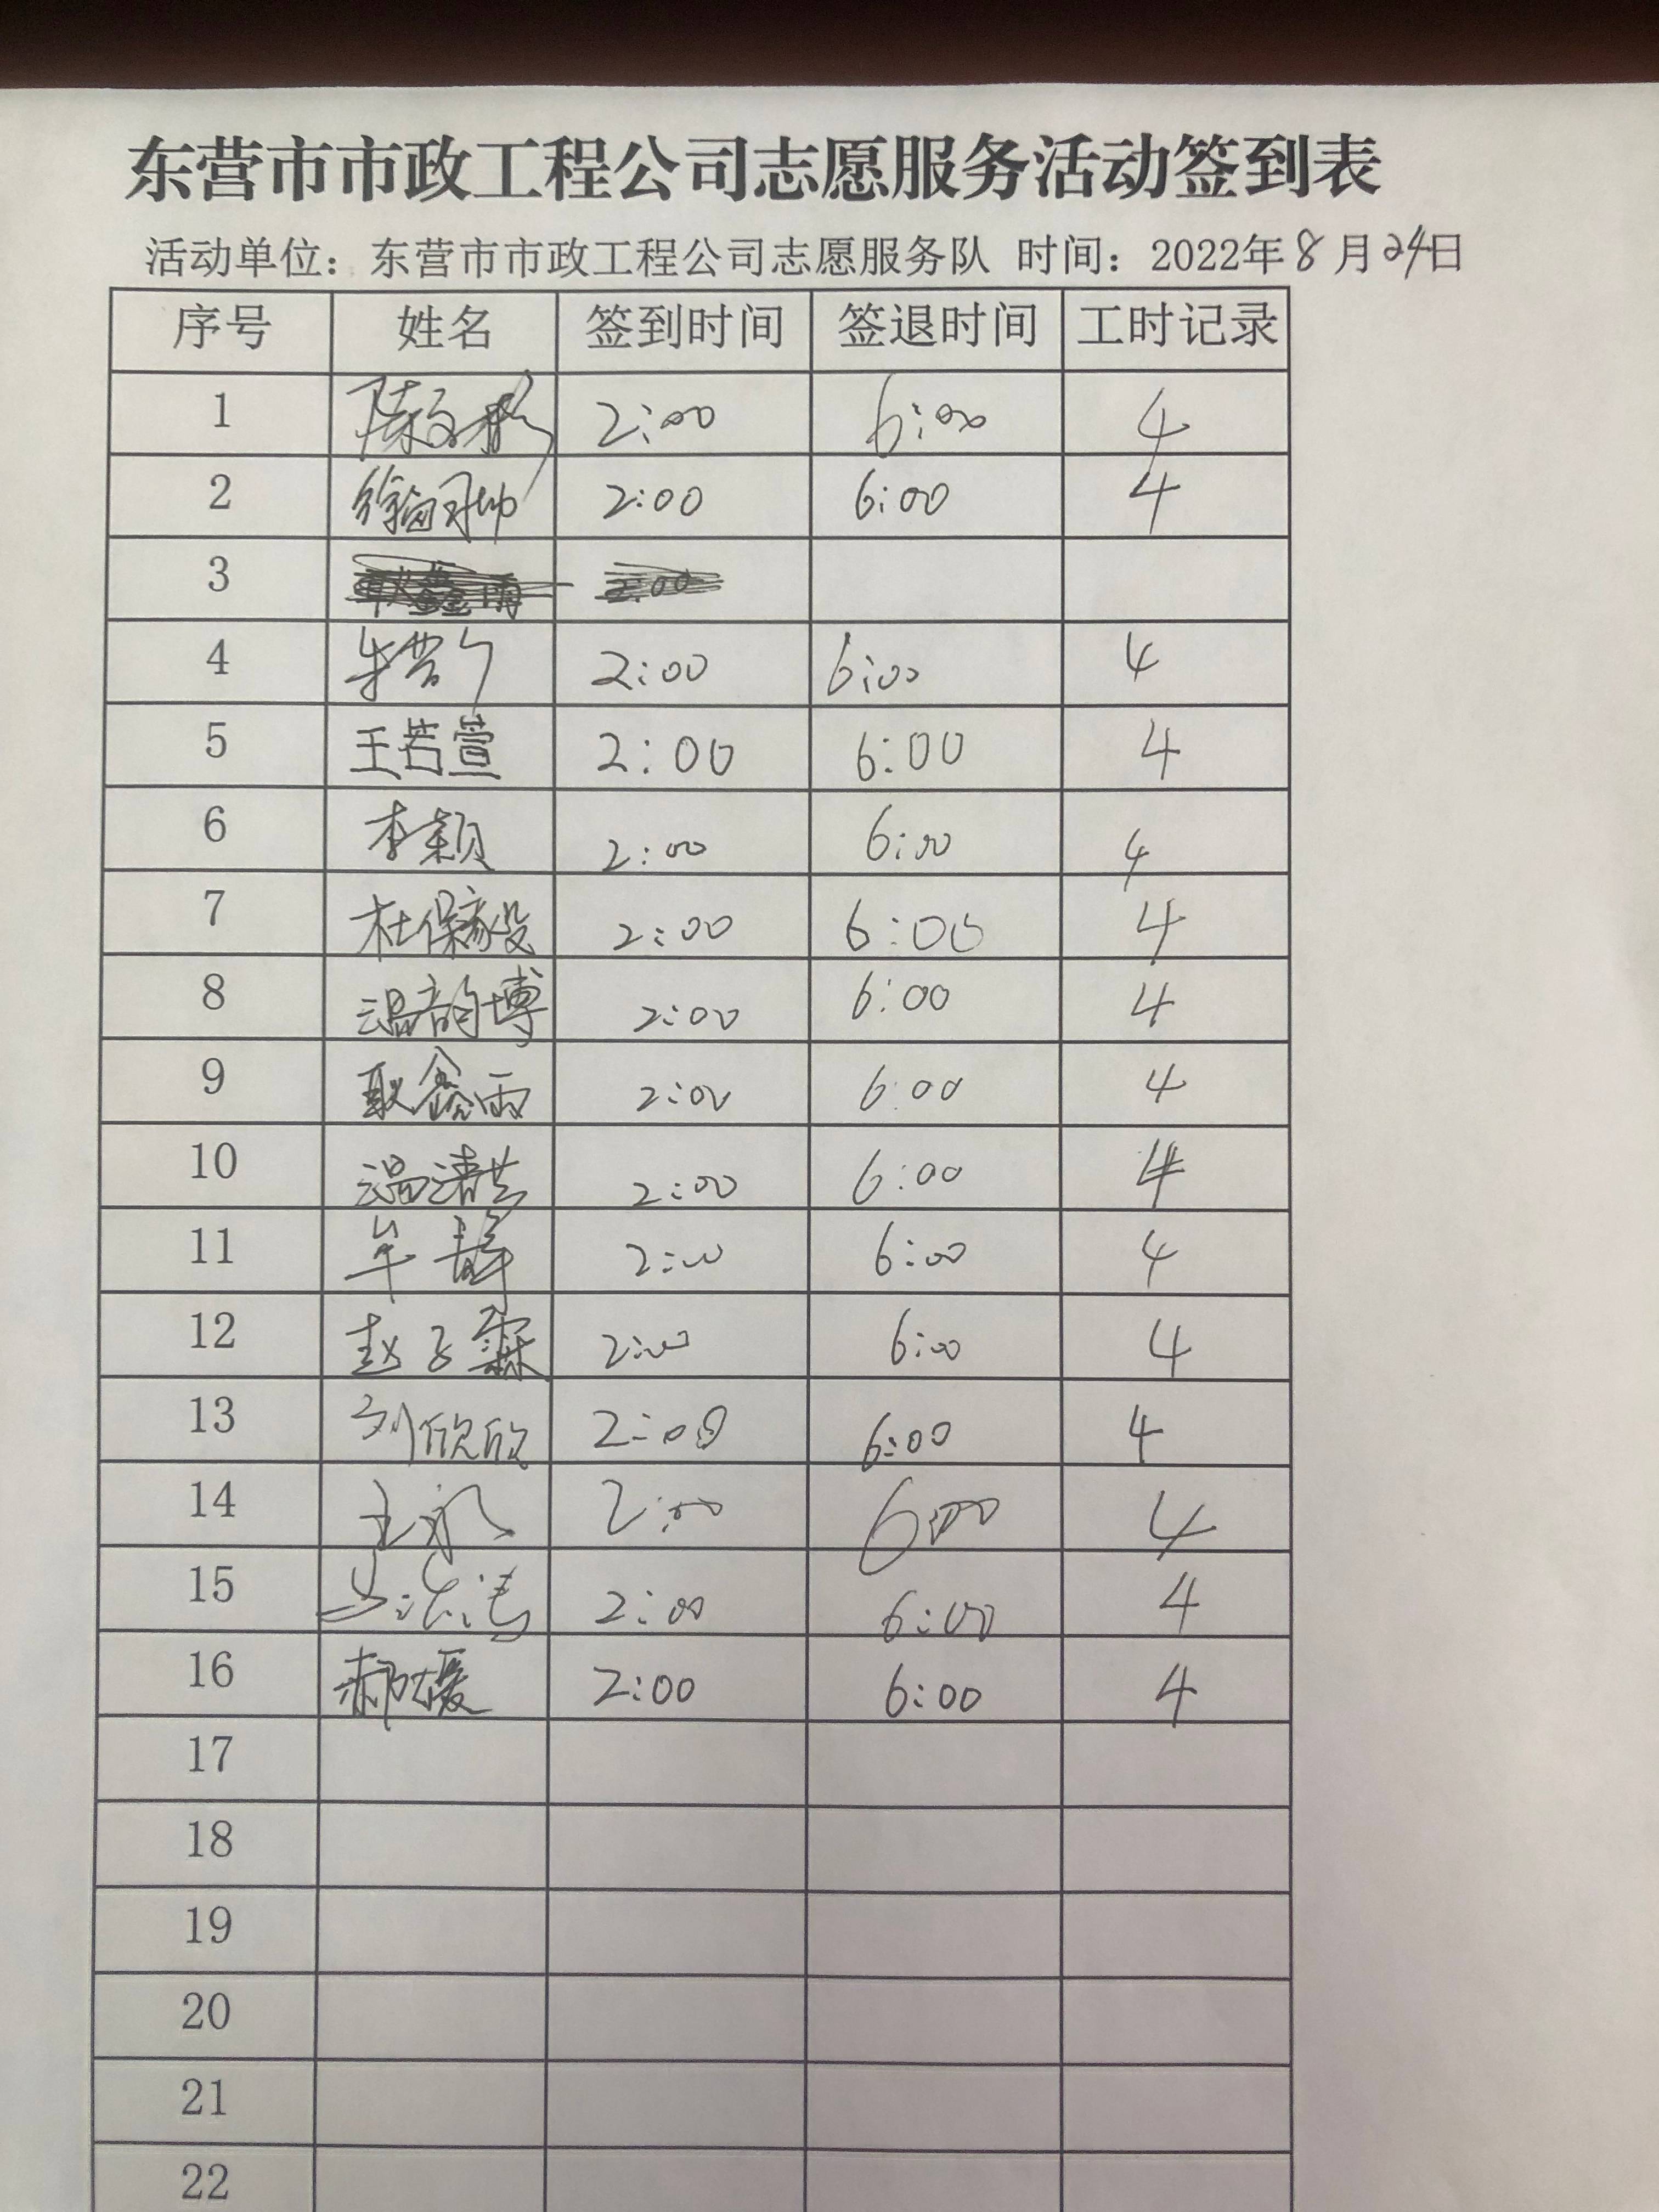 东营市市政工程公司志愿服务活动签到表
活动单位：东营市市政工程公司志愿服务队 时间：2022年8月24日
序号 姓名 签到时间 签退时间 工时记录
1 2:00 6:00 4
2 2:00 6:00 4
3 2:00
4 2:00 6:00 4
5 王若萱 2:00 6:00 4
6 李颖 2:00 6:00 4
7 杜保毅 2:00 6:00 4
8 温韵博 2:00 6:00 4
9 耿鑫雨 2:00 6:00 4
10 温清芸 2:00 6:00 4
11 牟 2:00 6:00 4
12 赵子霖 2:00 6:00 4
13 刘欣欣 2:00 6:00 4
14 2:00 6:00 4
15 2:00 6:00 4
16 郝媛 2:00 6:00 4
17
18
19
20
21
22